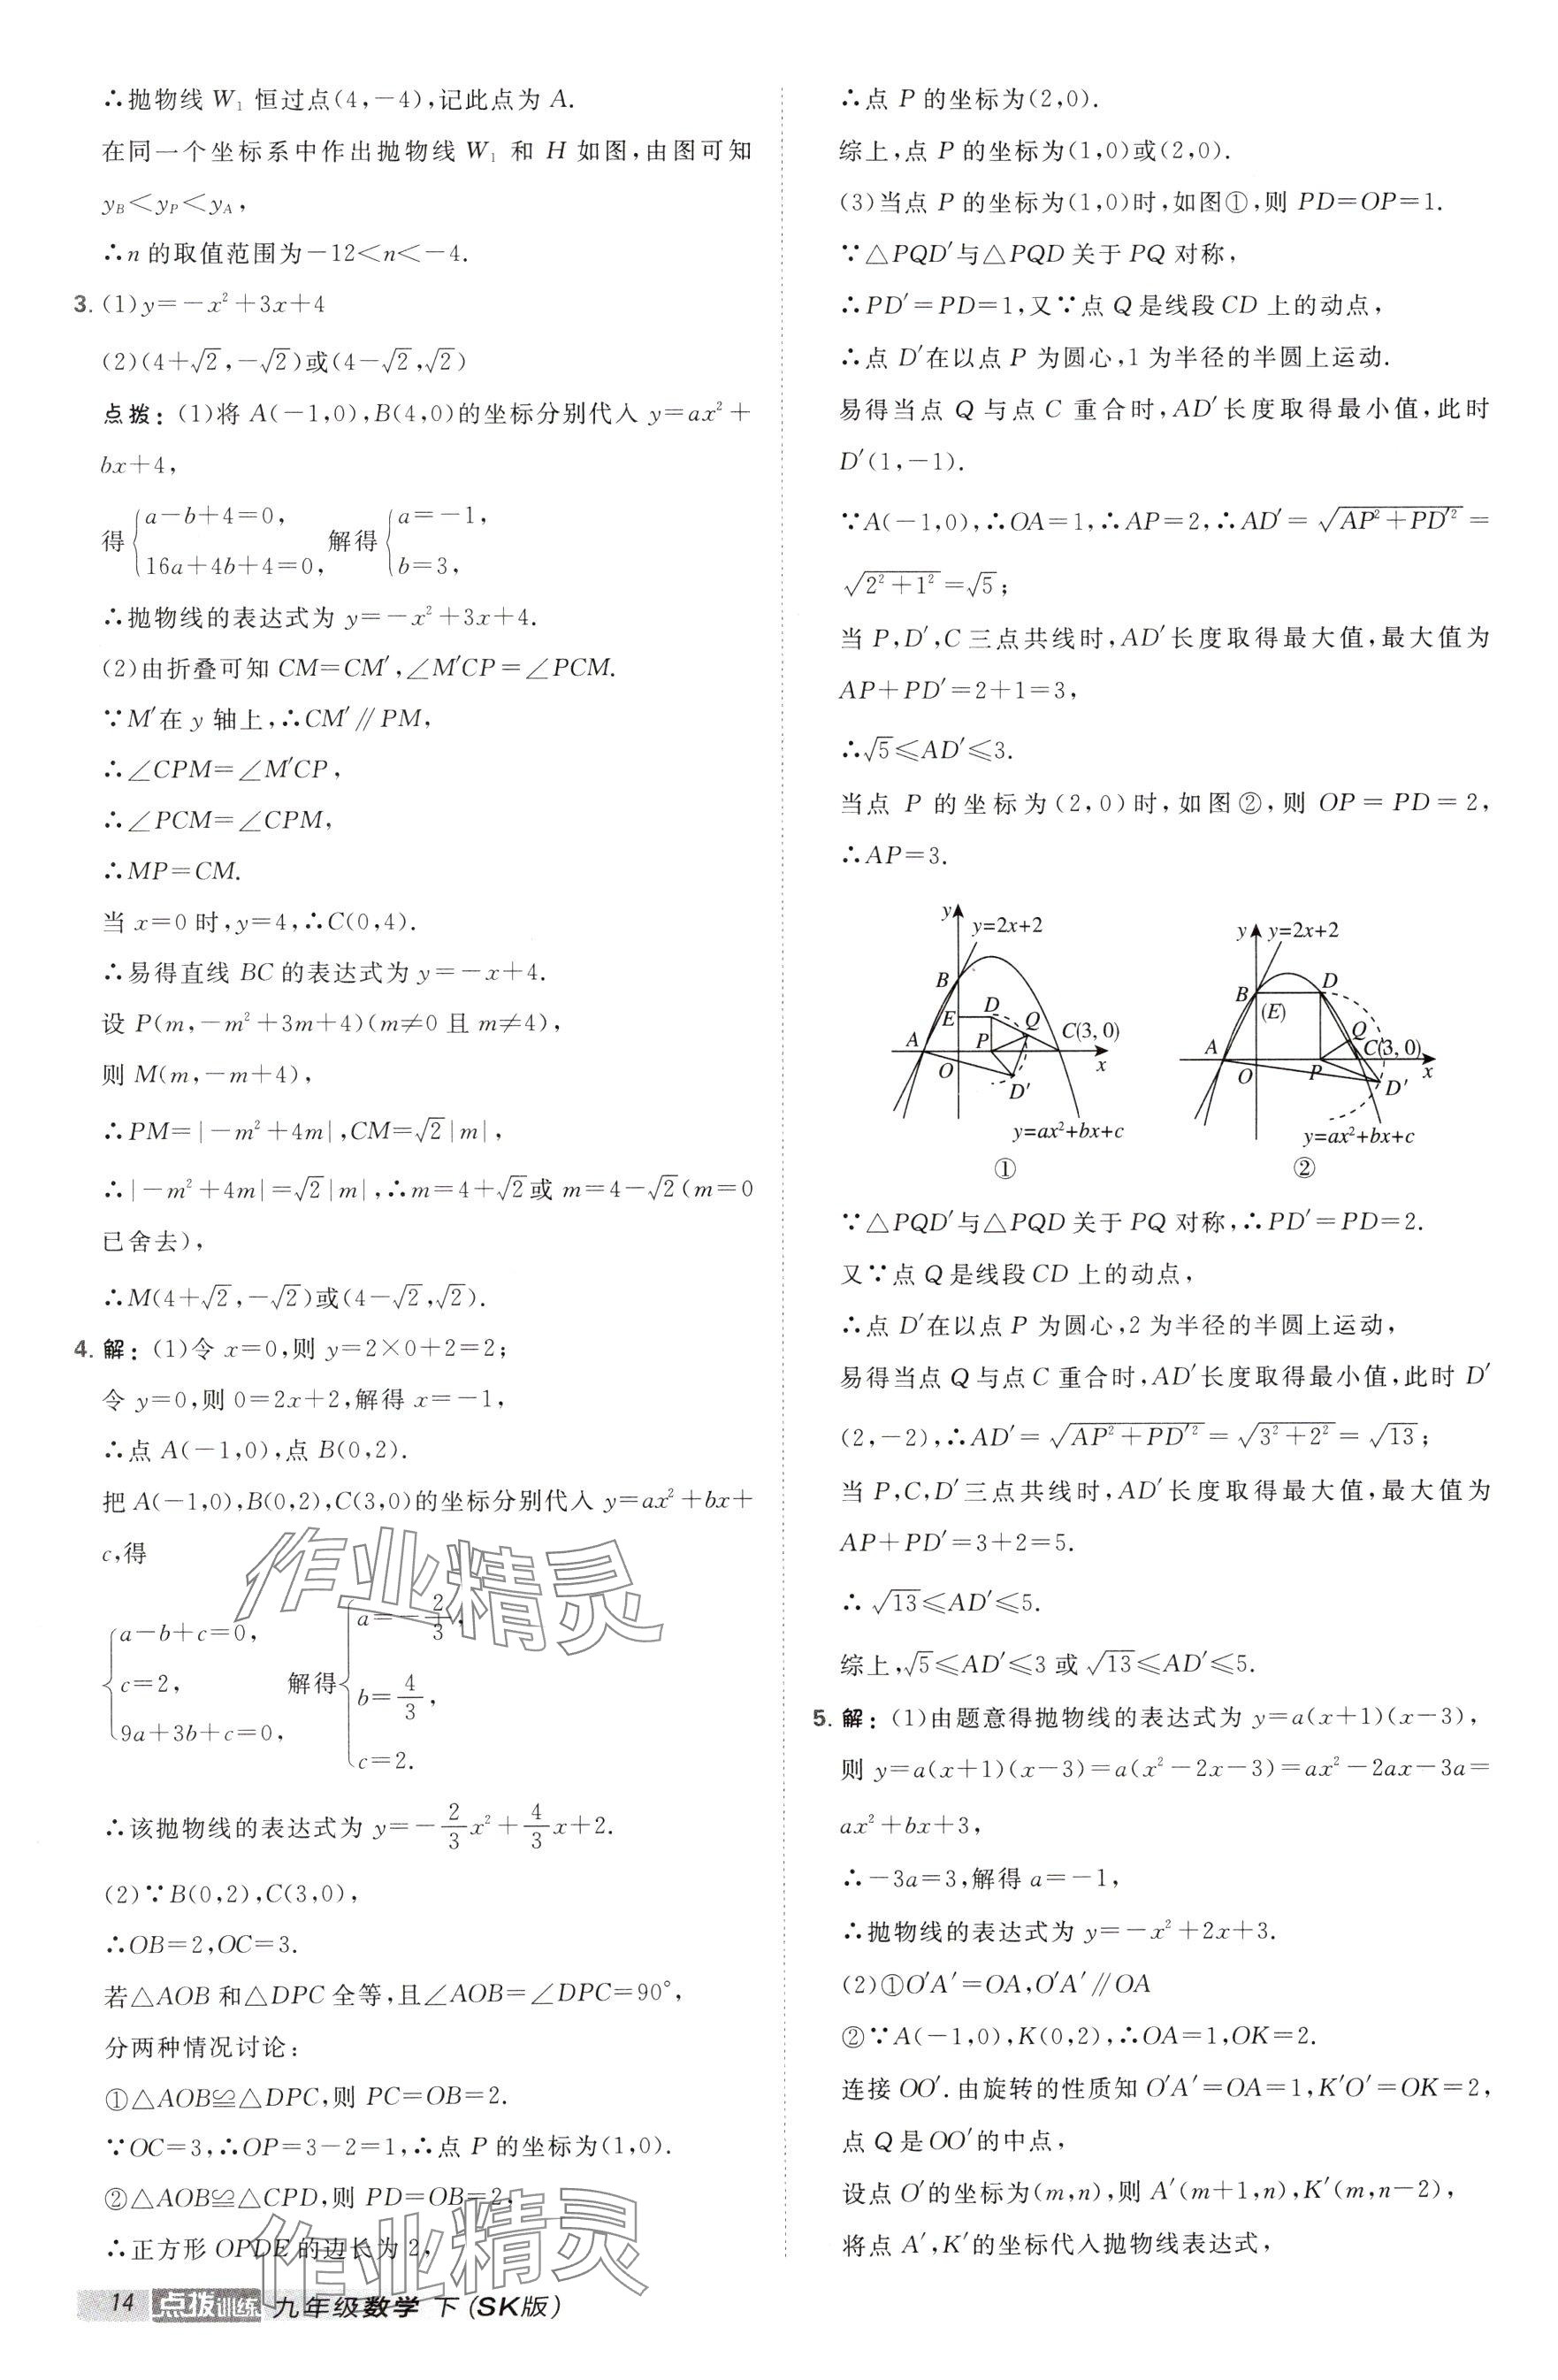 ∴抛物线 W₁ 恒过点(4,-4),记此点为 A.
在同一个坐标系中作出抛物线 W₁ 和 H 如图,由图可知
y_B<y_P<y_A,
∴n 的取值范围为-12<n<-4.
3. (1)y=-x²+3x+4
(2)(4+√2,-√2)或(4-√2,√2)
点拨:(1)将 A(-1,0),B(4,0)的坐标分别代入 y=ax²+
bx+4,
得{a-b+4=0, 16a+4b+4=0, 解得{a=-1, b=3,
∴抛物线的表达式为 y=-x²+3x+4.
(2)由折叠可知 CM=CM′,∠M′CP=∠PCM.
∵M′在 y 轴上,∴CM′∥PM,
∴∠CPM=∠M′CP,
∴∠PCM=∠CPM,
∴MP=CM.
当 x=0 时,y=4,∴C(0,4).
∴易得直线 BC 的表达式为 y=-x+4.
设 P(m,-m²+3m+4)(m≠0 且 m≠4),
则 M(m,-m+4),
∴PM=|-m²+4m|,CM=√2|m|,
∴|-m²+4m|=√2|m|,∴m=4+√2或 m=4-√2(m=0
已舍去),
∴M(4+√2,-√2)或(4-√2,√2).
4. 解:(1)令 x=0,则 y=2×0+2=2;
令 y=0,则 0=2x+2,解得 x=-1,
∴点 A(-1,0),点 B(0,2).
把 A(-1,0),B(0,2),C(3,0)的坐标分别代入 y=ax²+bx+
c,得
{a-b+c=0, c=2, 9a+3b+c=0, 解得{a=-2/3, b=4/3, c=2.
∴该抛物线的表达式为 y=-2/3x²+4/3x+2.
(2)∵B(0,2),C(3,0),
∴OB=2,OC=3.
若△AOB 和△DPC 全等,且∠AOB=∠DPC=90°,
分两种情况讨论:
①△AOB≌△DPC,则 PC=OB=2.
∵OC=3,∴OP=3-2=1,∴点 P 的坐标为(1,0).
②△AOB≌△CPD,则 PD=OB=2,
∴正方形 OPDE 的边长为 2,
∴点 P 的坐标为(2,0).
综上,点 P 的坐标为(1,0)或(2,0).
(3)当点 P 的坐标为(1,0)时,如图①,则 PD=OP=1.
∵△PQD′与△PQD 关于 PQ 对称,
∴PD′=PD=1,又∵点 Q 是线段 CD 上的动点,
∴点 D′在以点 P 为圆心,1 为半径的半圆上运动.
易得当点 Q 与点 C 重合时,AD′长度取得最小值,此时
D′(1,-1).
∵A(-1,0),∴OA=1,∴AP=2,∴AD′=√(AP²+PD′²)=
√(2²+1²)=√5;
当 P,D′,C 三点共线时,AD′长度取得最大值,最大值为
AP+PD′=2+1=3,
∴√5≤AD′≤3.
当点 P 的坐标为(2,0)时,如图②,则 OP=PD=2,
∴AP=3.
y y=2x+2 B E D Q C(3, 0) A O P D′ x y=ax²+bx+c ①
y y=2x+2 B (E) D Q C(3, 0) A O P D′ x y=ax²+bx+c ②
∵△PQD′与△PQD 关于 PQ 对称,∴PD′=PD=2.
又∵点 Q 是线段 CD 上的动点,
∴点 D′在以点 P 为圆心,2 为半径的半圆上运动,
易得当点 Q 与点 C 重合时,AD′长度取得最小值,此时 D′
(2,-2),∴AD′=√(AP²+PD′²)=√(3²+2²)=√13;
当 P,C,D′三点共线时,AD′长度取得最大值,最大值为
AP+PD′=3+2=5.
∴√13≤AD′≤5.
综上,√5≤AD′≤3 或√13≤AD′≤5.
5. 解:(1)由题意得抛物线的表达式为 y=a(x+1)(x-3),
则 y=a(x+1)(x-3)=a(x²-2x-3)=ax²-2ax-3a=
ax²+bx+3,
∴-3a=3,解得 a=-1,
∴抛物线的表达式为 y=-x²+2x+3.
(2)①O′A′=OA,O′A′∥OA
②∵A(-1,0),K(0,2),∴OA=1,OK=2.
连接 OO′.由旋转的性质知 O′A′=OA=1,K′O′=OK=2,
点 Q 是 OO′的中点,
设点 O′的坐标为(m,n),则 A′(m+1,n),K′(m,n-2),
将点 A′,K′的坐标代入抛物线表达式,
作业精灵
作业精灵
14 点拨训练 九年级数学 下(SK版)